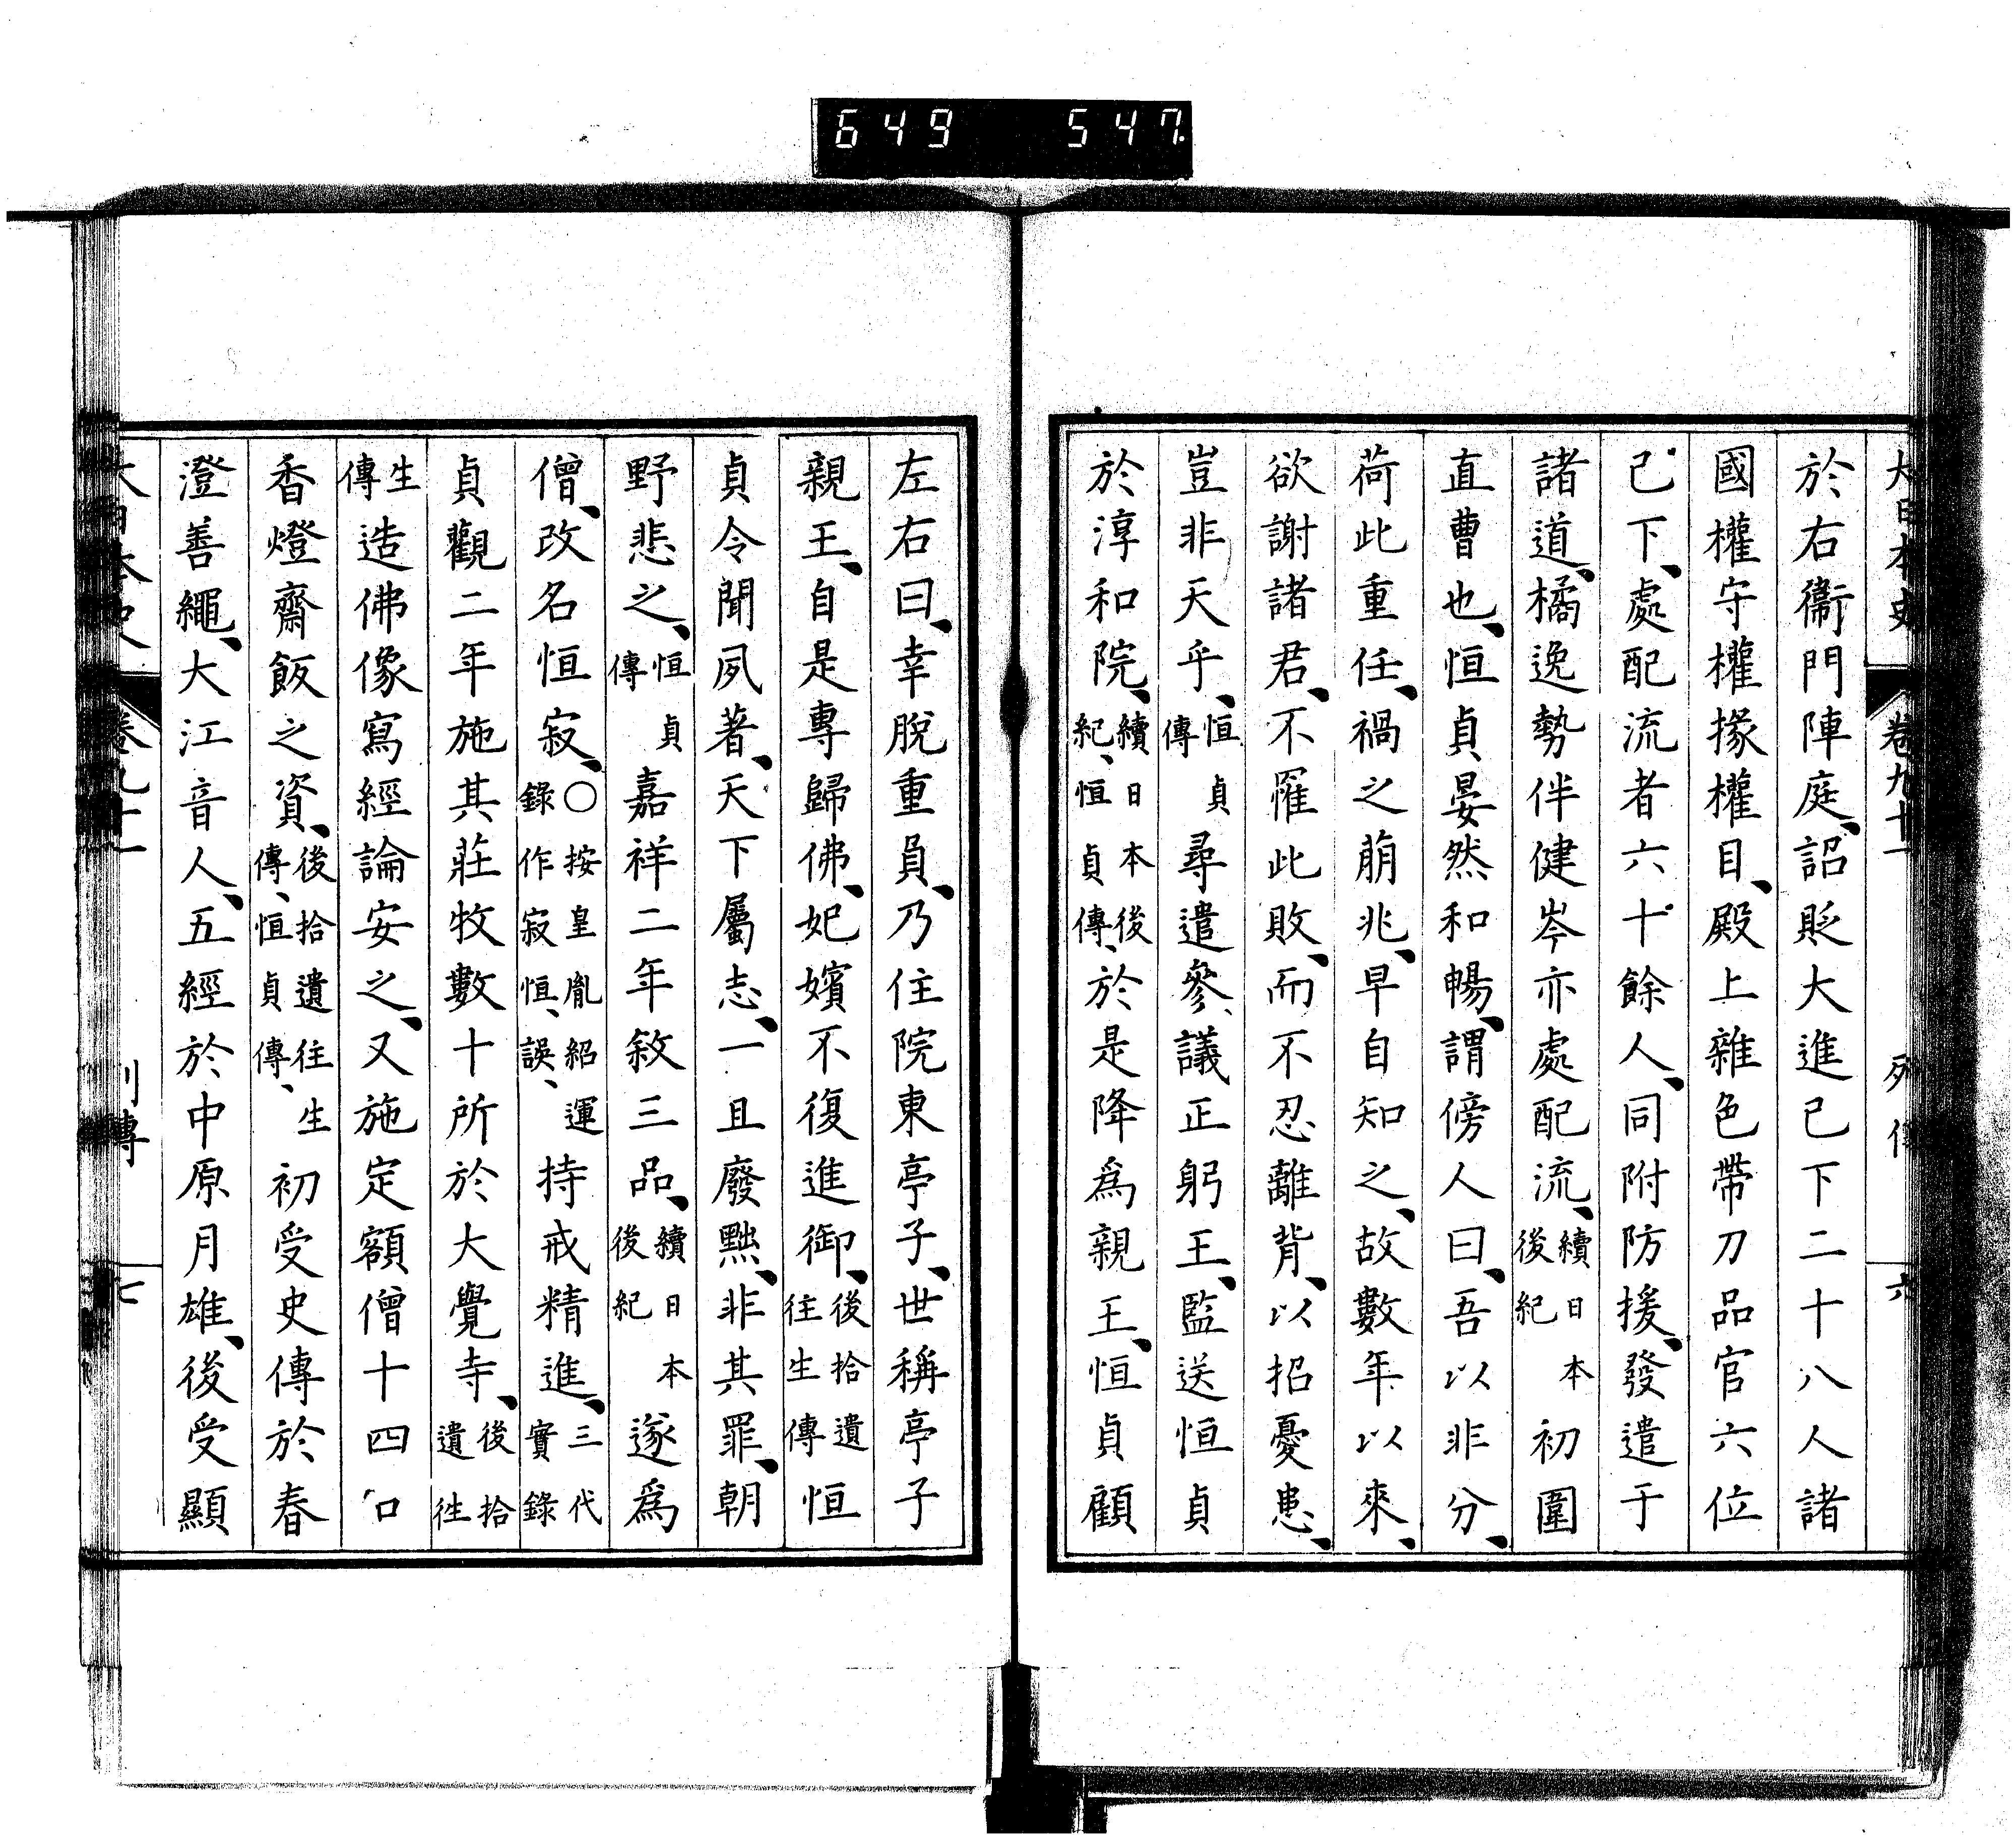 649 547.
大日本史 卷九十一 列傳 六
於右衞門陣庭、詔貶大進已下二十八人諸
國權守權掾權目、殿上雜色帶刀品官六位
已下、處配流者六十餘人、同附防援、發遣于
諸道、橘逸勢伴健岑亦處配流、續日本後紀初圍
直曹也、恒貞晏然和暢、謂傍人曰、吾以非分、
荷此重任、禍之萠兆、早自知之、故數年以來、
欲謝諸君、不罹此敗、而不忍離背、以招憂患、
豈非天乎、恒貞傳尋遣參議正躬王、監送恒貞
於淳和院、續日本後紀、恒貞傳、於是降爲親王、恒貞顧
左右曰、幸脫重負、乃住院東亭子、世稱亭子
親王、自是專歸佛、妃嬪不復進御、後拾遺往生傳恒
貞令聞夙著、天下屬志、一旦廢黜、非其罪、朝
野悲之、恒貞傳嘉祥二年敘三品、續日本後紀遂爲
僧、改名恒寂、〇按皇胤紹運錄作寂恒、誤、持戒精進、三代實錄
貞觀二年施其莊牧數十所於大覺寺、後拾遺往
生傳造佛像寫經論安之、又施定額僧十四口
香燈齋飯之資、後拾遺往生傳、恒貞傳、初受史傳於春
澄善繩、大江音人、五經於中原月雄、後受顯
大日本史 卷九十一 列傳 七